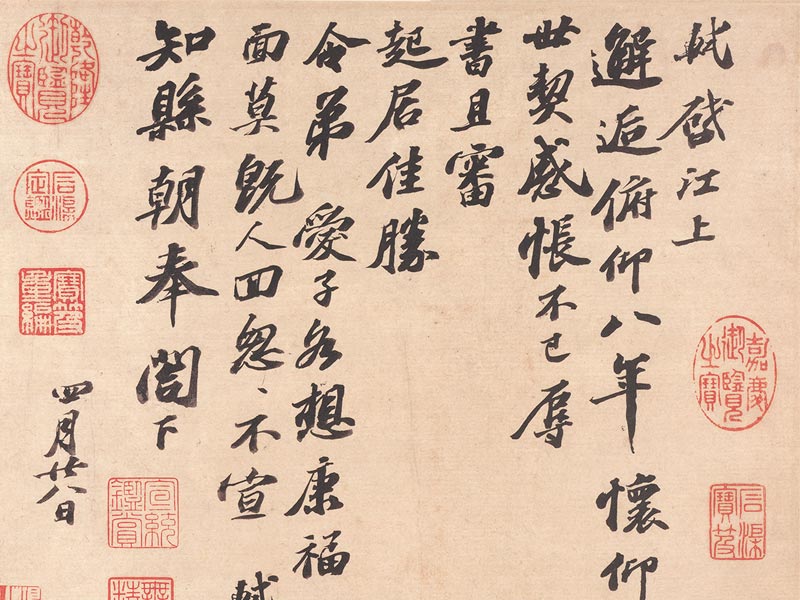 軾啓江上
邂逅俯仰八年懷仰
世契感悵不已辱
書且審
起居佳勝
令弟愛子各想康福
面莫既人回怱〻不宣 軾
知縣朝奉閤下
四月廿八日
嘉慶御覽之寶
石渠寶笈
宣統鑑賞
乾隆御覽之寶
石渠定鑑
寶笈重編